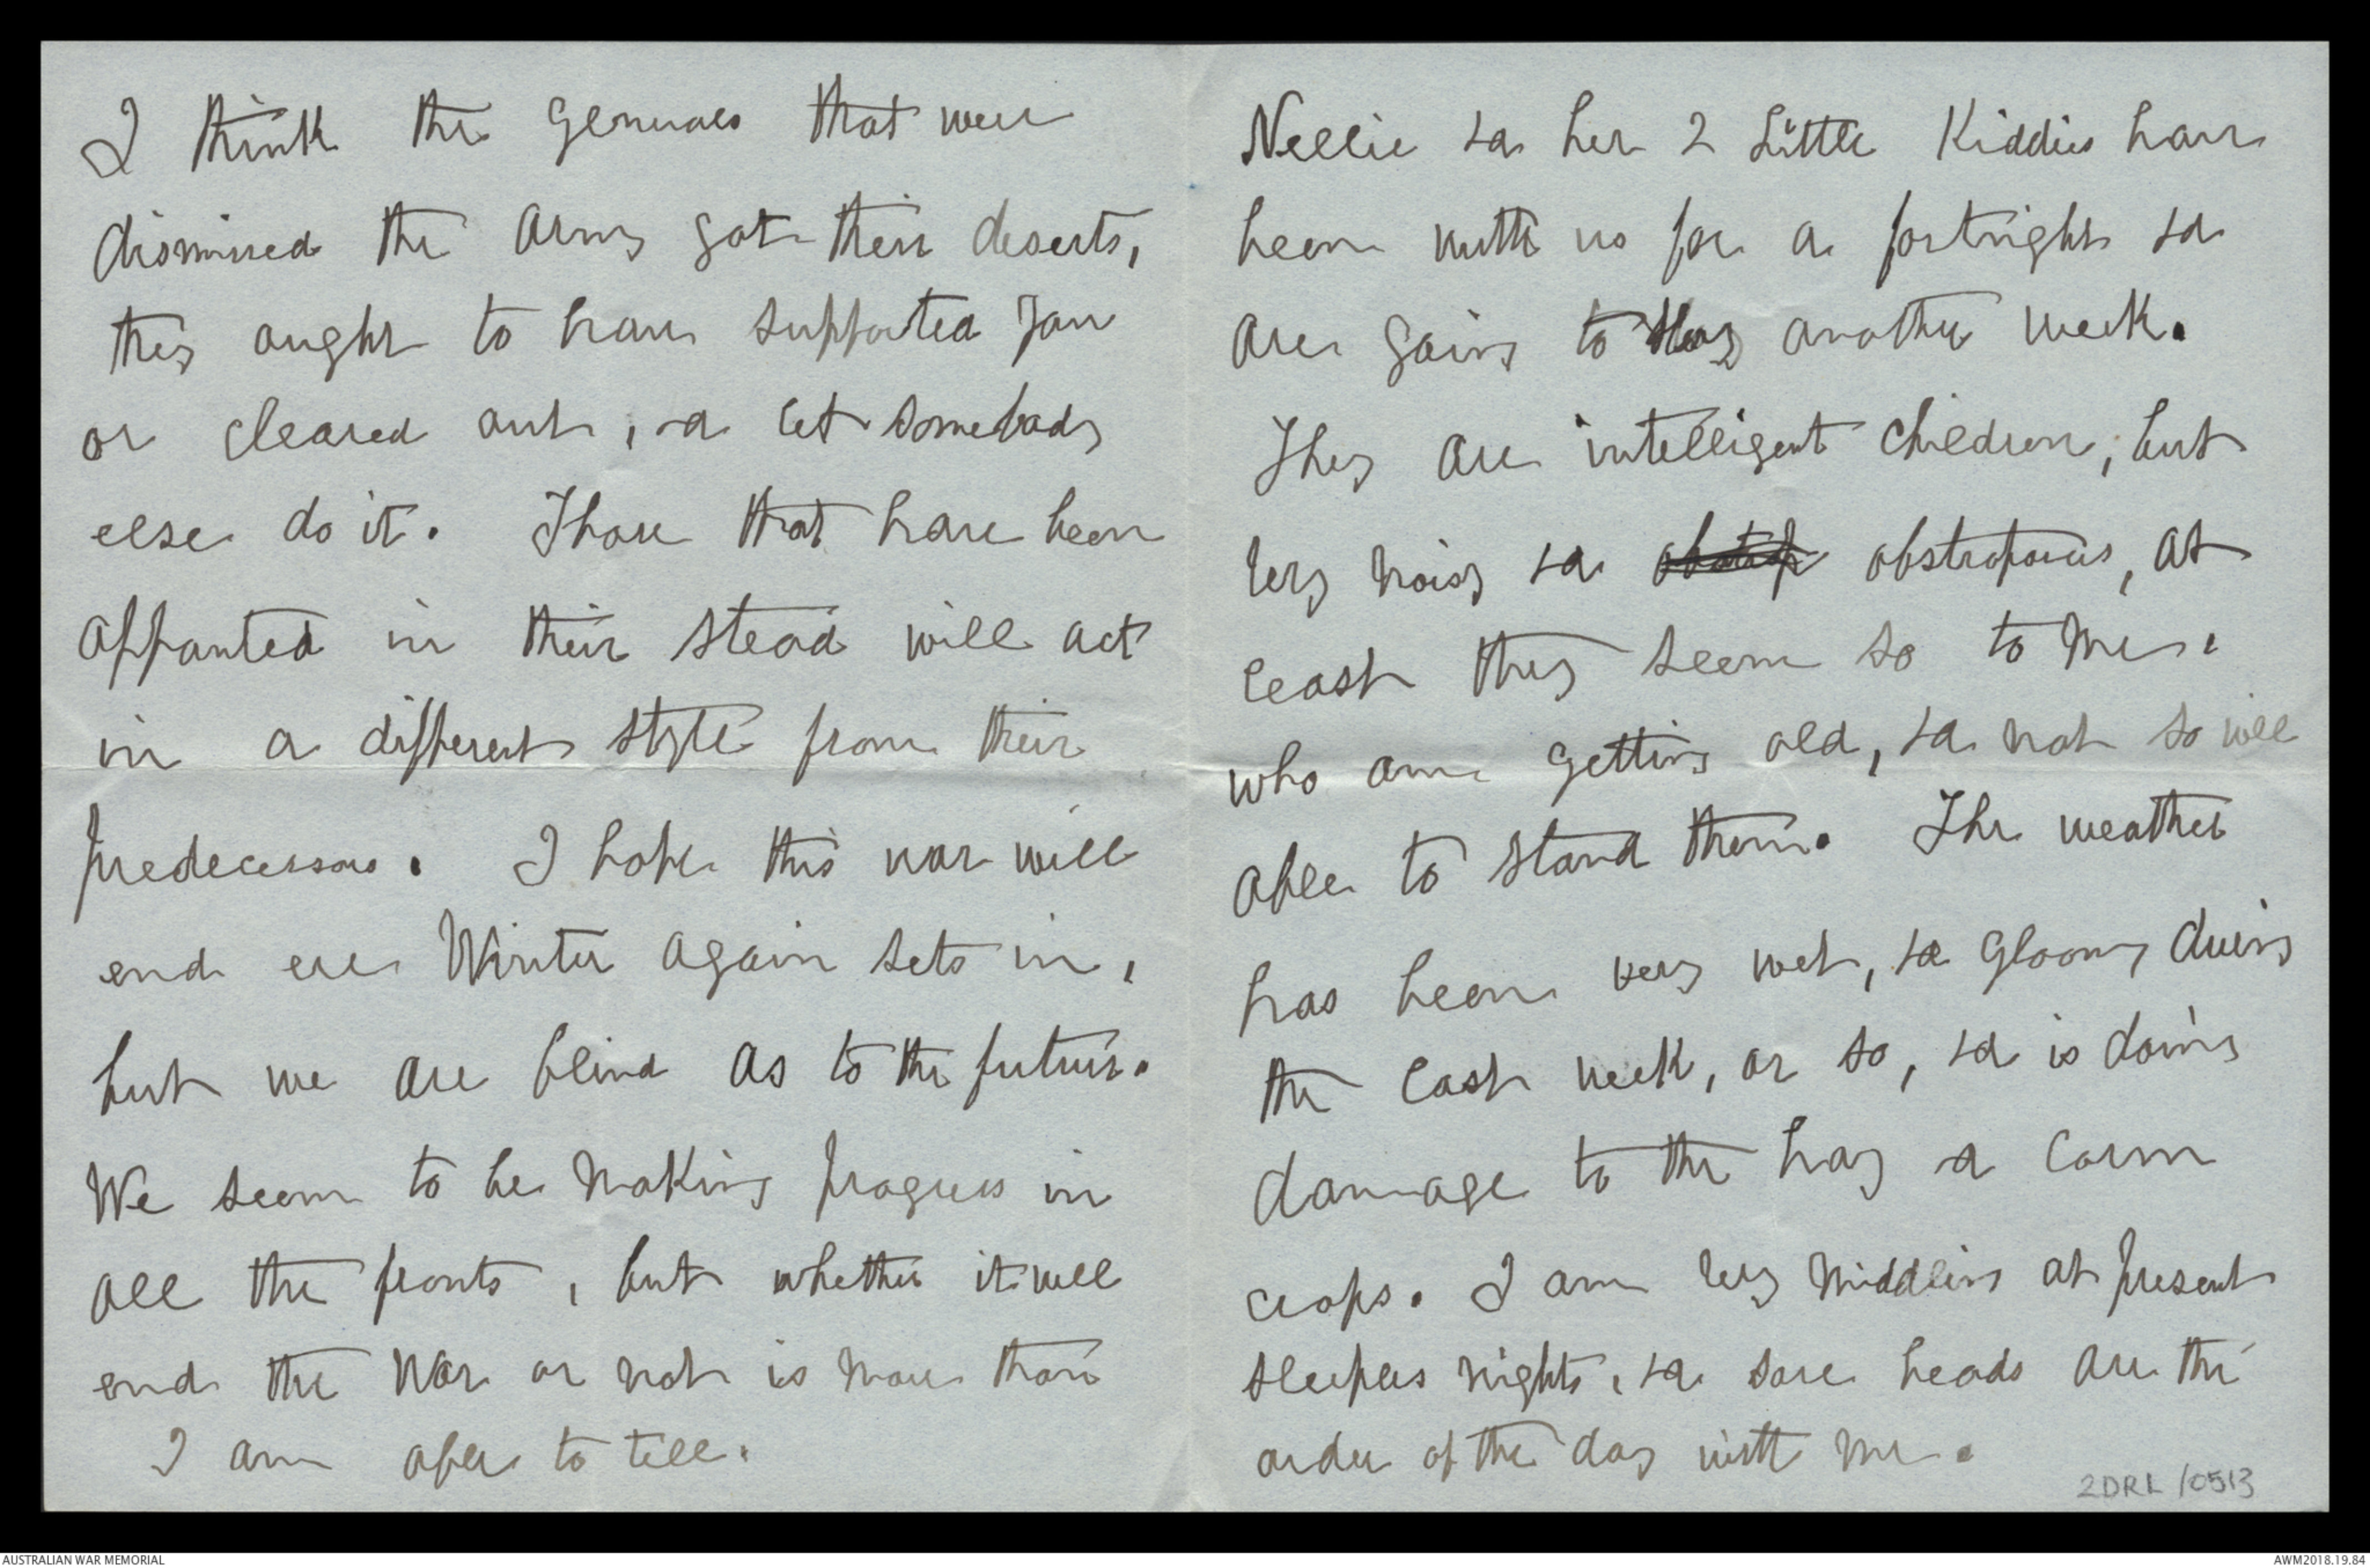 I think the Generals that were
dismissed the Army got their deserts,
they ought to have supported you
or cleared out, & let somebody
else do it. Those that have been
appointed in their stead will act
in a different style from their
predecessors. I hope this war will
end ere Winter again sets in,
but we are blind as to the future.
We seem to be making progress in
all the fronts, but whether it will
end the War or not is more than
I am able to tell.
Nellie & her 2 Little Kiddies have
been with us for a fortnight &
are going to stay another week.
They are intelligent children, but
very noisy & obstroporus, at
least they seem so to me,
who am getting old, & not so well
able to stand them. The weather
has been very wet, & gloomy during
the last week, or so, & is doing
damage to the hay & corn
crops. I am very middling at present
sleepless nights, & sore heads are the
order of the day with me.
2DRL/0513
AUSTRALIAN WAR MEMORIAL
AWM2018.19.84